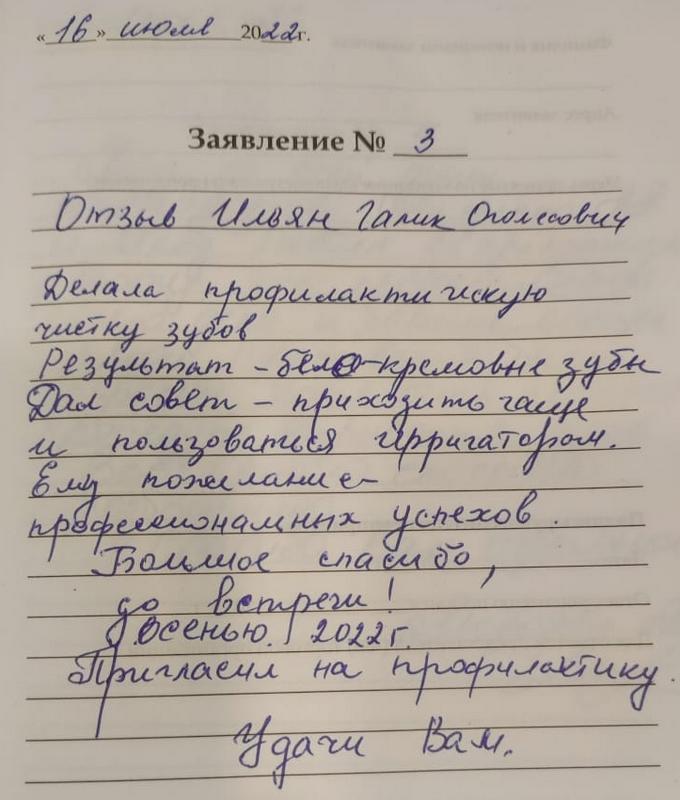 «16» июля 2022г.
Заявление № 3
Отзыв Ильян Галик Оголесович
Делала профилактичискую
чистку зубов
Результат – бело-кремовые зубы
Дал совет – приходить чаще
и пользоваться ирригатором.
Ему пожелание –
профессиональных успехов.
Большое спасибо,
до встречи!
Осенью. 2022 г.
Пригласил на профилактику.
Удачи Вам.